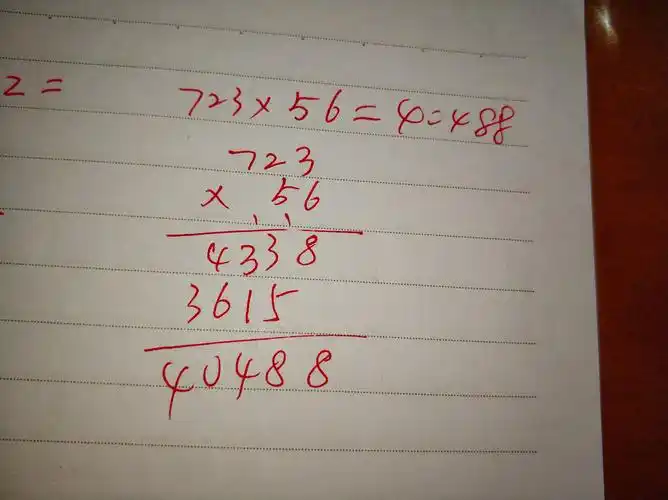 2 =
723 × 56 = 40488
723
× 56
4338
3615
40488